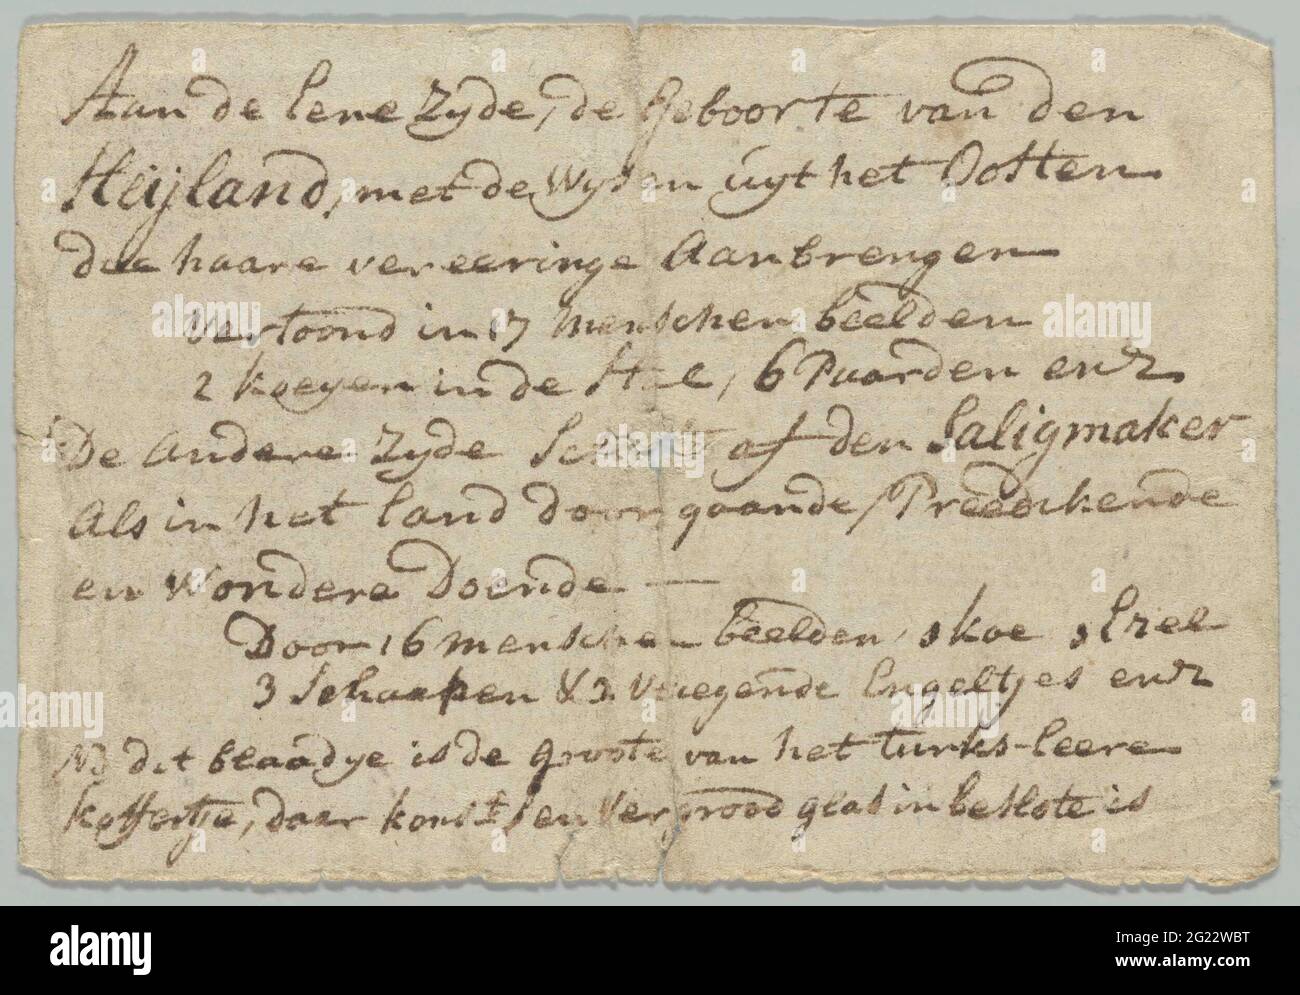 Aan de Eene Zyde, de Geboorte van den
Heijland, met de Wysen uyt het Oosten
die haare vereeringe Aanbrengen
Vertoond in 17 menschen beelden
2 koeyen in de Stal, 6 Paarden enz
De Andere Zyde Schetst af den Saligmaker
Als in het Land Door gaande, Predickende
en Wondere Doende —
Door 16 menschen beelden, 1 koe 1 Ezel
3 Schaapen & 3 Vliegende Engeltjes enz
NB dit blaadje is de groote van het turks-leere
koffertje, daar konst en Vergrood glas in beslote is
alamy
Image ID: 2G22WBT
www.alamy.com